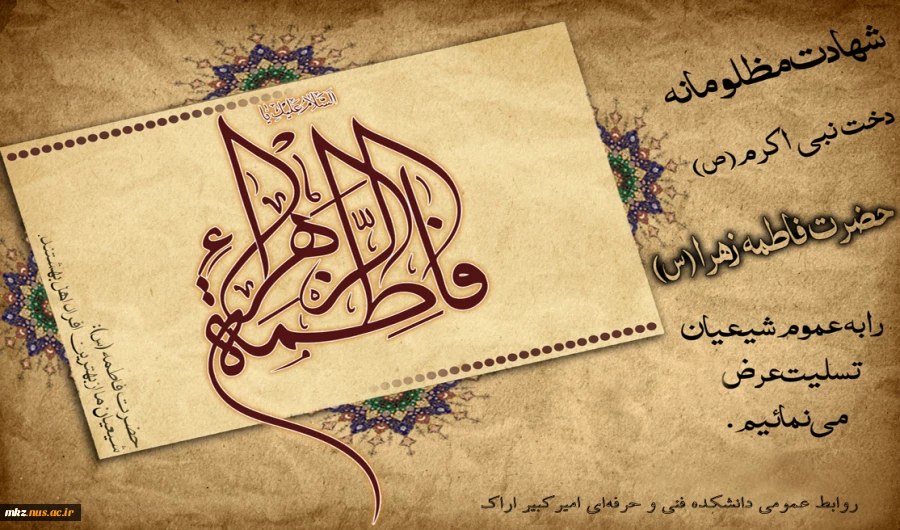 شهادت مظلومانه
دخت نبی اکرم (ص)
حضرت فاطمه زهرا (س)
را به عموم شیعیان
تسلیت عرض
می‌نمائیم.
السلام علیک یا
فاطمة الزهراء
حضرت فاطمه (س):
شیعیان ما از بهترین افراد اهل بهشتند.
روابط عمومی دانشکده فنی و حرفه‌ای امیرکبیر اراک
mkz.nus.ac.ir